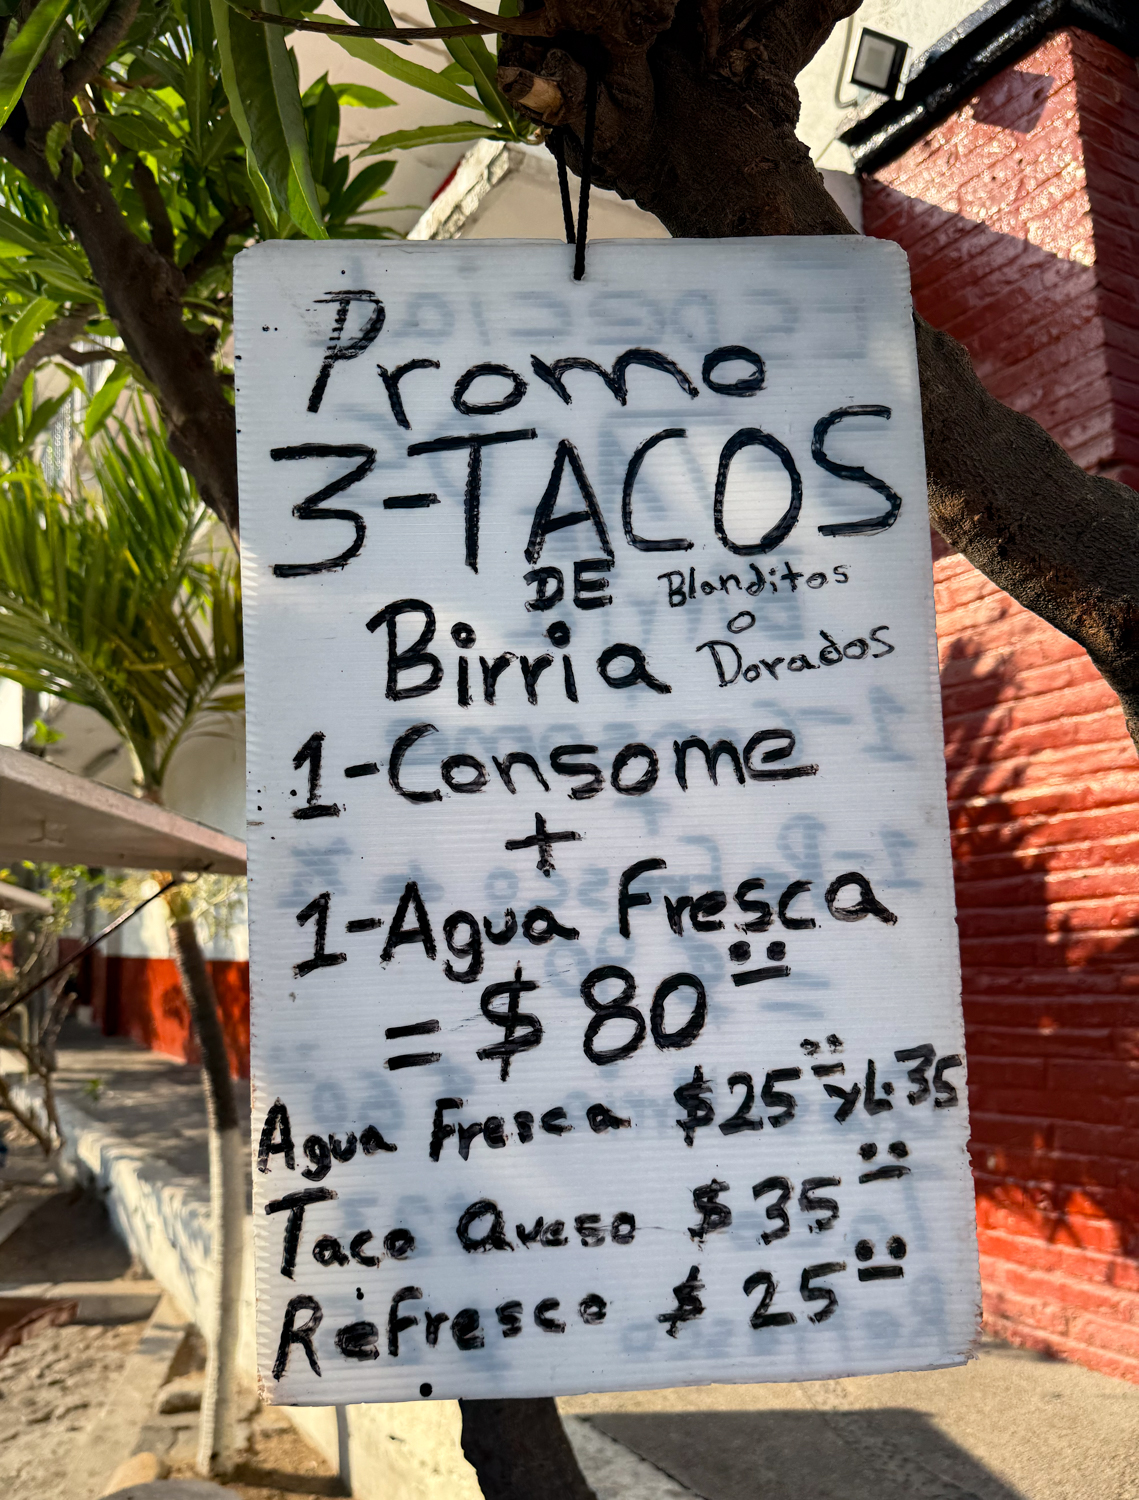 Promo
3-TACOS
DE Blanditos
o
Birria Dorados
1-Consome
+
1-Agua Fresca
= $ 80
Agua Fresca $25 y L. 35
Taco Queso $ 35
Refresco $ 25